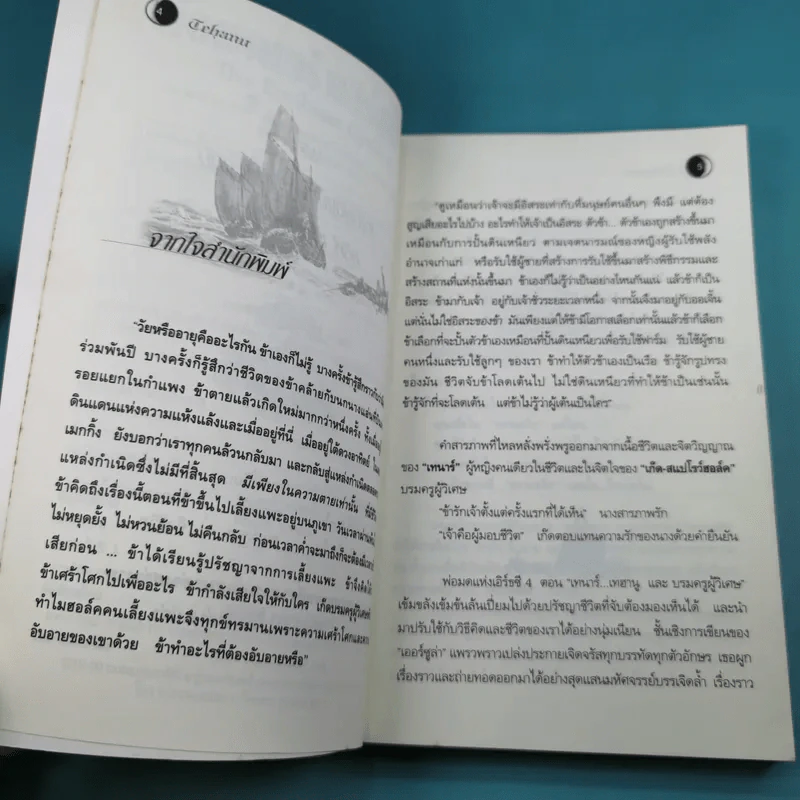 4
Tehanu
จากใจสำนักพิมพ์
"วัยหรืออายุคืออะไรกัน ข้าเองก็ไม่รู้ บางครั้งข้ารู้สึกราวกับว่ามี
ร่วมพันปี บางครั้งก็รู้สึกว่าชีวิตของข้าคล้ายกับนกนางแอ่นที่บิน
รอยแยกในกำแพง ข้าตายแล้วเกิดใหม่มากกว่าหนึ่งครั้ง ทั้งเมื่ออยู่
ดินแดนแห่งความแห้งแล้งและเมื่ออยู่ที่นี่ เมื่ออยู่ใต้ดวงอาทิตย์
เมกกิ้ง ยังบอกว่าเราทุกคนล้วนกลับมา และกลับสู่แหล่งกำเนิด
แหล่งกำเนิดซึ่งไม่มีที่สิ้นสุด มีเพียงในความตายเท่านั้น
ข้าคิดถึงเรื่องนี้ตอนที่ข้าขึ้นไปเลี้ยงแพะอยู่บนภูเขา วันเวลาผ่าน
ไม่หยุดยั้ง ไม่หวนย้อน ไม่คืนกลับ ก่อนเวลาค่ำจะมาถึงก็จะต้อง
เสียก่อน ... ข้าได้เรียนรู้ปรัชญาจากการเลี้ยงแพะ ข้าจึงคิด
ข้าเศร้าโศกไปเพื่ออะไร ข้ากำลังเสียใจให้กับใคร เก็ดบรมครูผู้วิเศษ
ทำไมฮอล์คคนเลี้ยงแพะจึงทุกข์ทรมานเพราะความเศร้าโศกและความ
อับอายของเขาด้วย ข้าทำอะไรที่ต้องอับอายหรือ"
5
"ดูเหมือนว่าเจ้าจะมีอิสระเท่ากับที่มนุษย์คนอื่นๆ พึงมี แต่ต้อง
สูญเสียอะไรไปบ้าง อะไรทำให้เจ้าเป็นอิสระ ตัวข้า... ตัวข้าเองถูกสร้างขึ้นมา
เหมือนกับการปั้นดินเหนียว ตามเจตนารมณ์ของหญิงผู้รับใช้พลัง
อำนาจเก่าแก่ หรือรับใช้ผู้ชายที่สร้างการรับใช้ขึ้นมาสร้างพิธีกรรมและ
สร้างสถานที่แห่งนั้นขึ้นมา ข้าเองก็ไม่รู้ว่าเป็นอย่างไหนกันแน่ แล้วข้าก็เป็น
อิสระ ข้ามากับเจ้า อยู่กับเจ้าชั่วระยะเวลาหนึ่ง จากนั้นจึงมาอยู่กับออเจี้ยน
แต่นั่นไม่ใช่อิสระของข้า มันเพียงแต่ให้ข้ามีโอกาสเลือกเท่านั้นแล้วข้าก็เลือก
ข้าเลือกที่จะปั้นตัวข้าเองเหมือนที่ปั้นดินเหนียวเพื่อรับใช้ฟาร์ม รับใช้ผู้ชาย
คนหนึ่งและรับใช้ลูกๆ ของเรา ข้าทำให้ตัวข้าเองเป็นเรือ ข้ารู้จักรูปทรง
ของมัน ชีวิตจับข้าโลดเต้นไป ไม่ใช่ดินเหนียวที่ทำให้ข้าเป็นเช่นนั้น
ข้ารู้จักที่จะโลดเต้น แต่ข้าไม่รู้ว่าผู้เต้นเป็นใคร"
คำสารภาพที่ไหลหลั่งพรั่งพรูออกมาจากเนื้อชีวิตและจิตวิญญาณ
ของ "เทนาร์" ผู้หญิงคนเดียวในชีวิตและในจิตใจของ "เก็ด-สแปโรว์ฮอล์ค"
บรมครูผู้วิเศษ
"ข้ารักเจ้าตั้งแต่ครั้งแรกที่ได้เห็น" นางสารภาพรัก
"เจ้าคือผู้มอบชีวิต" เก็ดตอบแทนความรักของนางด้วยคำยืนยัน
พ่อมดแห่งเอิร์ธซี 4 ตอน "เทนาร์...เทฮานู และ บรมครูผู้วิเศษ"
เข้มขลังเข้มข้นล้นเปี่ยมไปด้วยปรัชญาชีวิตที่จับต้องมองเห็นได้ และนำ
มาปรับใช้กับวิธีคิดและชีวิตของเราได้อย่างนุ่มเนียน ชั้นเชิงการเขียนของ
"เออร์ซูล่า" แพรวพราวเปล่งประกายเจิดจรัสทุกบรรทัดทุกตัวอักษร เธอผูก
เรื่องราวและถ่ายทอดออกมาได้อย่างสุดแสนมหัศจรรย์บรรเจิดล้ำ เรื่องราว